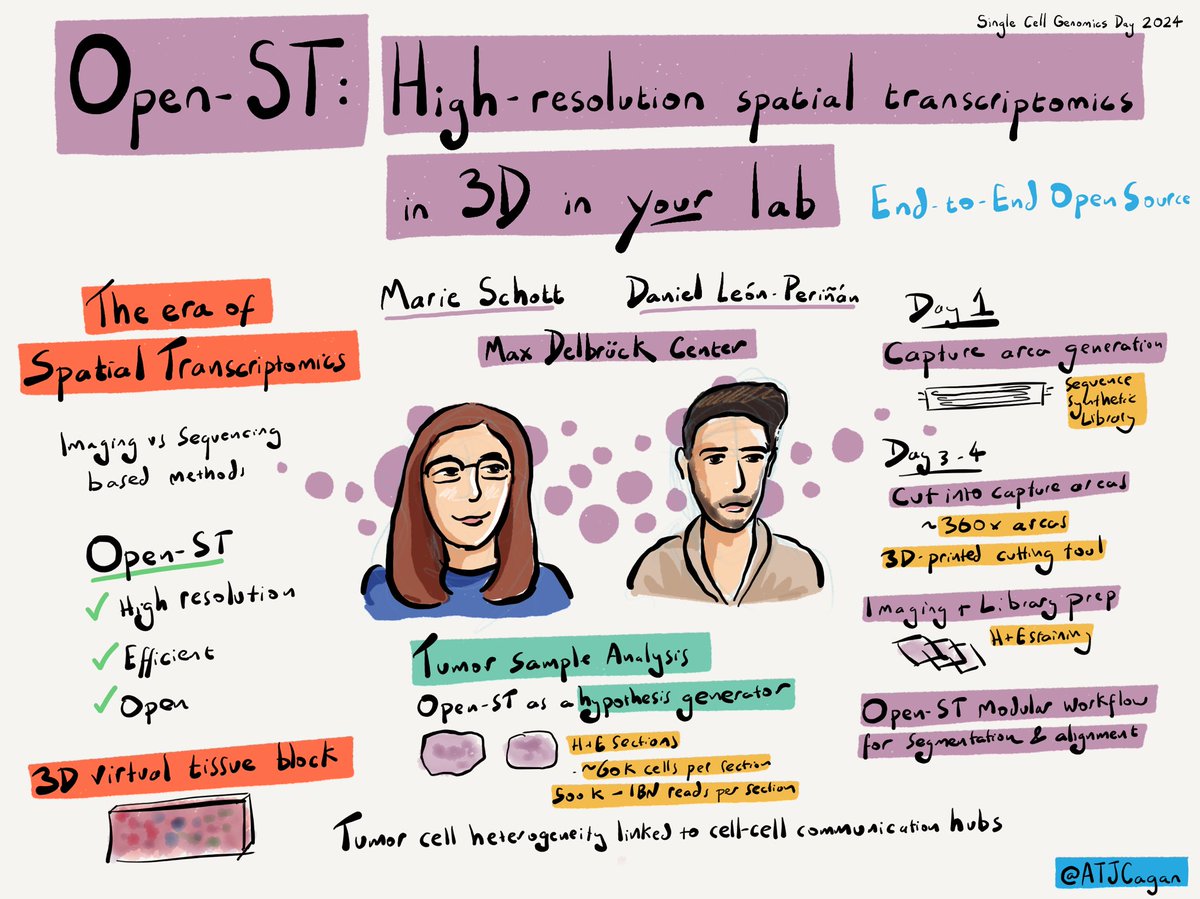 Single Cell Genomics Day 2024
Open-ST: High-resolution spatial transcriptomics
in 3D in your lab
End-to-End Open Source
The era of
Spatial Transcriptomics
Imaging vs Sequencing
based methods
Open-ST
✓ High resolution
✓ Efficient
✓ Open
3D virtual tissue block
Marie Schott
Daniel León-Periñán
Max Delbrück Center
Tumor Sample Analysis
Open-ST as a hypothesis generator
H+E sections
~60K cells per section
500K - 1BN reads per section
Tumor cell heterogeneity linked to cell-cell communication hubs
Day 1
Capture area generation
Sequence
Synthetic
Library
Day 3-4
Cut into capture areas
~360x areas
3D-printed cutting tool
Imaging + Library prep
H+E staining
Open-ST Modular workflow
for segmentation & alignment
@ATJCagan